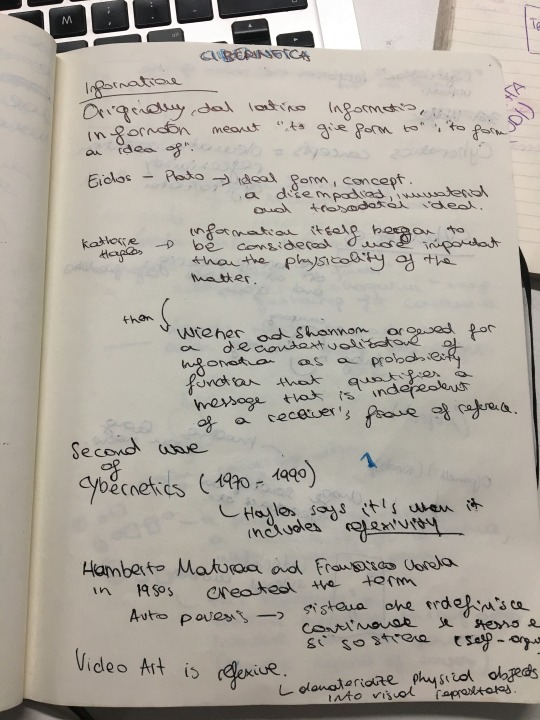 CIBERNETICA
Information
Originally, dal latino Informatio,
information meant "to give form to", "to form
an idea of"
Eidos - Plato → ideal form, concept.
a disempodied, immaterial
and trascdetal ideal.
Katherine
Hayles → information itself began to
be considered more important
than the physicality of the
matter.
then
Wiener ad Shannon argewed for
a decontextualization of
information as a probability
function that quantifies a
message that is indepedent
of a receiver's frame of reference.
Second wave
of
Cybernetics (1970 - 1990)
1
Hayles says it's when it
includes reflexivity
Humberto Maturaa ad Francisco Varela
in 1980s created the term
Auto poiesis → sistema che ridefinisce
continuamente se stesso e
si sostiene (self-orga
Video Art is reflexive.
dematerialize physical objects
into visual